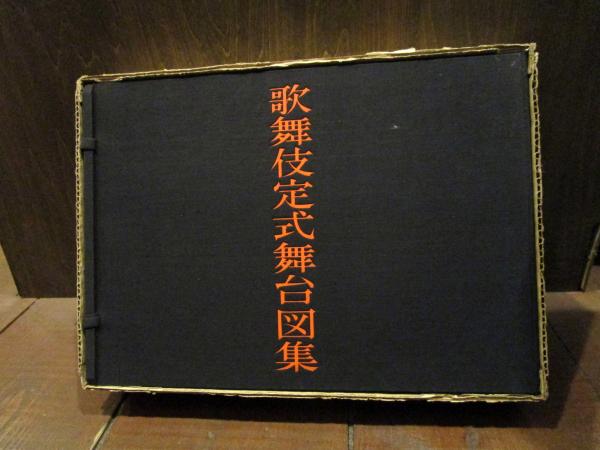 歌舞伎定式舞台図集